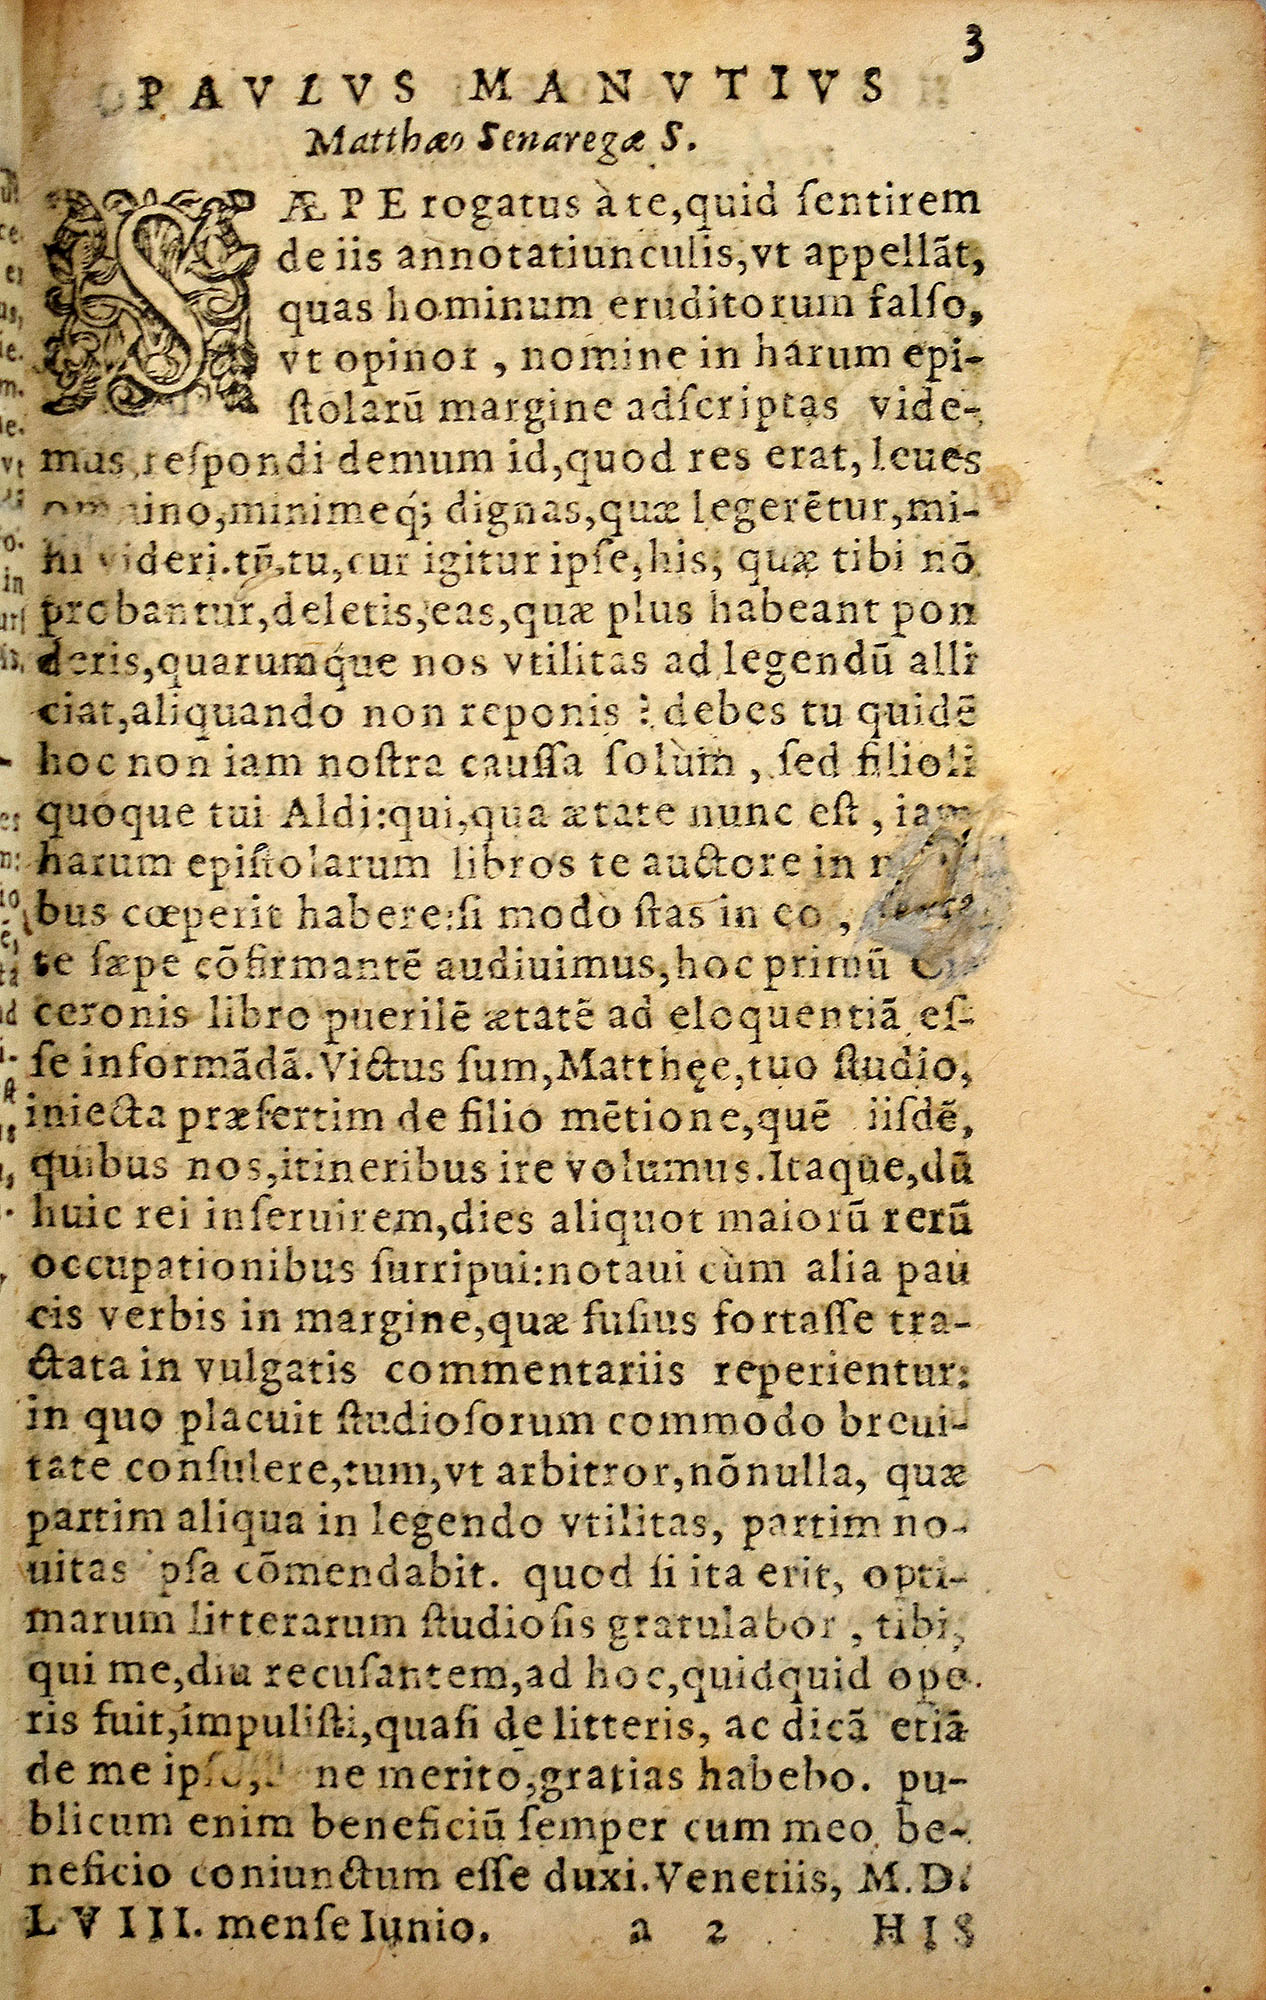 3
PAVLVS MANVTIVS
Matthæo Senaregæ S.
SÆPE rogatus à te, quid ſentirem
de iis annotatiunculis, vt appellãt,
quas hominum eruditorum falſo,
vt opinor, nomine in harum epi-
ſtolarũ margine adſcriptas vide-
mus, reſpondi demum id, quod res erat, leues
omnino, minimeq́; dignas, quæ legerẽtur, mi-
hi videri. tũ, tu, cur igitur ipſe, his, quæ tibi nõ
probantur, deletis, eas, quæ plus habeant pon
deris, quarumq́ue nos vtilitas ad legendũ alli
ciat, aliquando non reponis? debes tu quidẽ
hoc non iam noſtra cauſſa ſolùm, ſed filioli
quoque tui Aldi: qui, qua ætate nunc eſt, iam
harum epiſtolarum libros te auctore in
bus cœperit habere: ſi modò ſtas in eo,
te ſæpe cõfirmantẽ audiuimus, hoc primũ Ci-
ceronis libro puerilẽ ætatẽ ad eloquentiã eſ-
ſe informãdã. Victus ſum, Matthęe, tuo ſtudio,
iniecta præſertim de filio mẽtione, quẽ iiſdẽ,
quibus nos, itineribus ire volumus. Itaque, dũ
huic rei inſeruirem, dies aliquot maiorũ rerũ
occupationibus ſurripui: notaui cùm alia pau
cis verbis in margine, quæ fuſius fortaſſe tra-
ctata in vulgatis commentariis reperientur:
in quo placuit ſtudioſorum commodo breui-
tate conſulere, tum, vt arbitror, nõnulla, quæ
partim aliqua in legendo vtilitas, partim no-
uitas ipſa cõmendabit. quod ſi ita erit, opti-
marum litterarum ſtudioſis gratulabor, tibi,
qui me, diu recuſantem, ad hoc, quidquid ope
ris fuit, impuliſti, quaſi de litteris, ac dicã etiã
de me ipſo, ne merito, gratias habebo. pu-
blicum enim beneficiũ ſemper cum meo be-
neficio coniunctum eſſe duxi. Venetiis, M. D.
LVIII. menſe Iunio. a 2 HIS